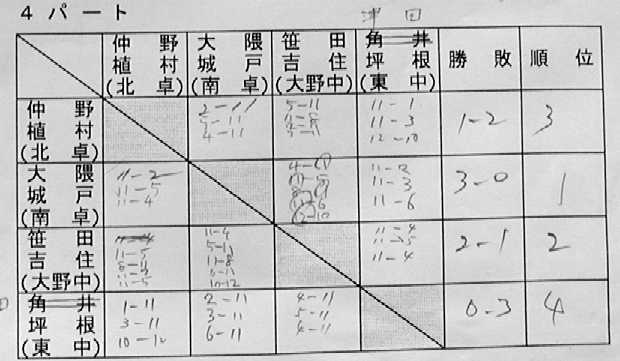 4 パート
津 田
仲 野 大 隈 笹 田 角 井
植 村 城 戸 吉 住 坪 根 勝 敗 順 位
(北 卓) (南 卓) (大野中) (東 中)
仲 野 2-11 5-11 11-1
植 村 5-11 11-3 1-2 3
(北 卓) 4-11 12-10
大 隈 11-2 11-2
城 戸 11-5 11-3 3-0 1
(南 卓) 11-4 11-6
笹 田 11-4 11-4
吉 住 11-5 11-8 11-5 2-1 2
(大野中) 11-5 10-12 11-4
角 井 1-11 2-11 4-11
坪 根 3-11 3-11 5-11 0-3 4
(東 中) 10-12 6-11 4-11